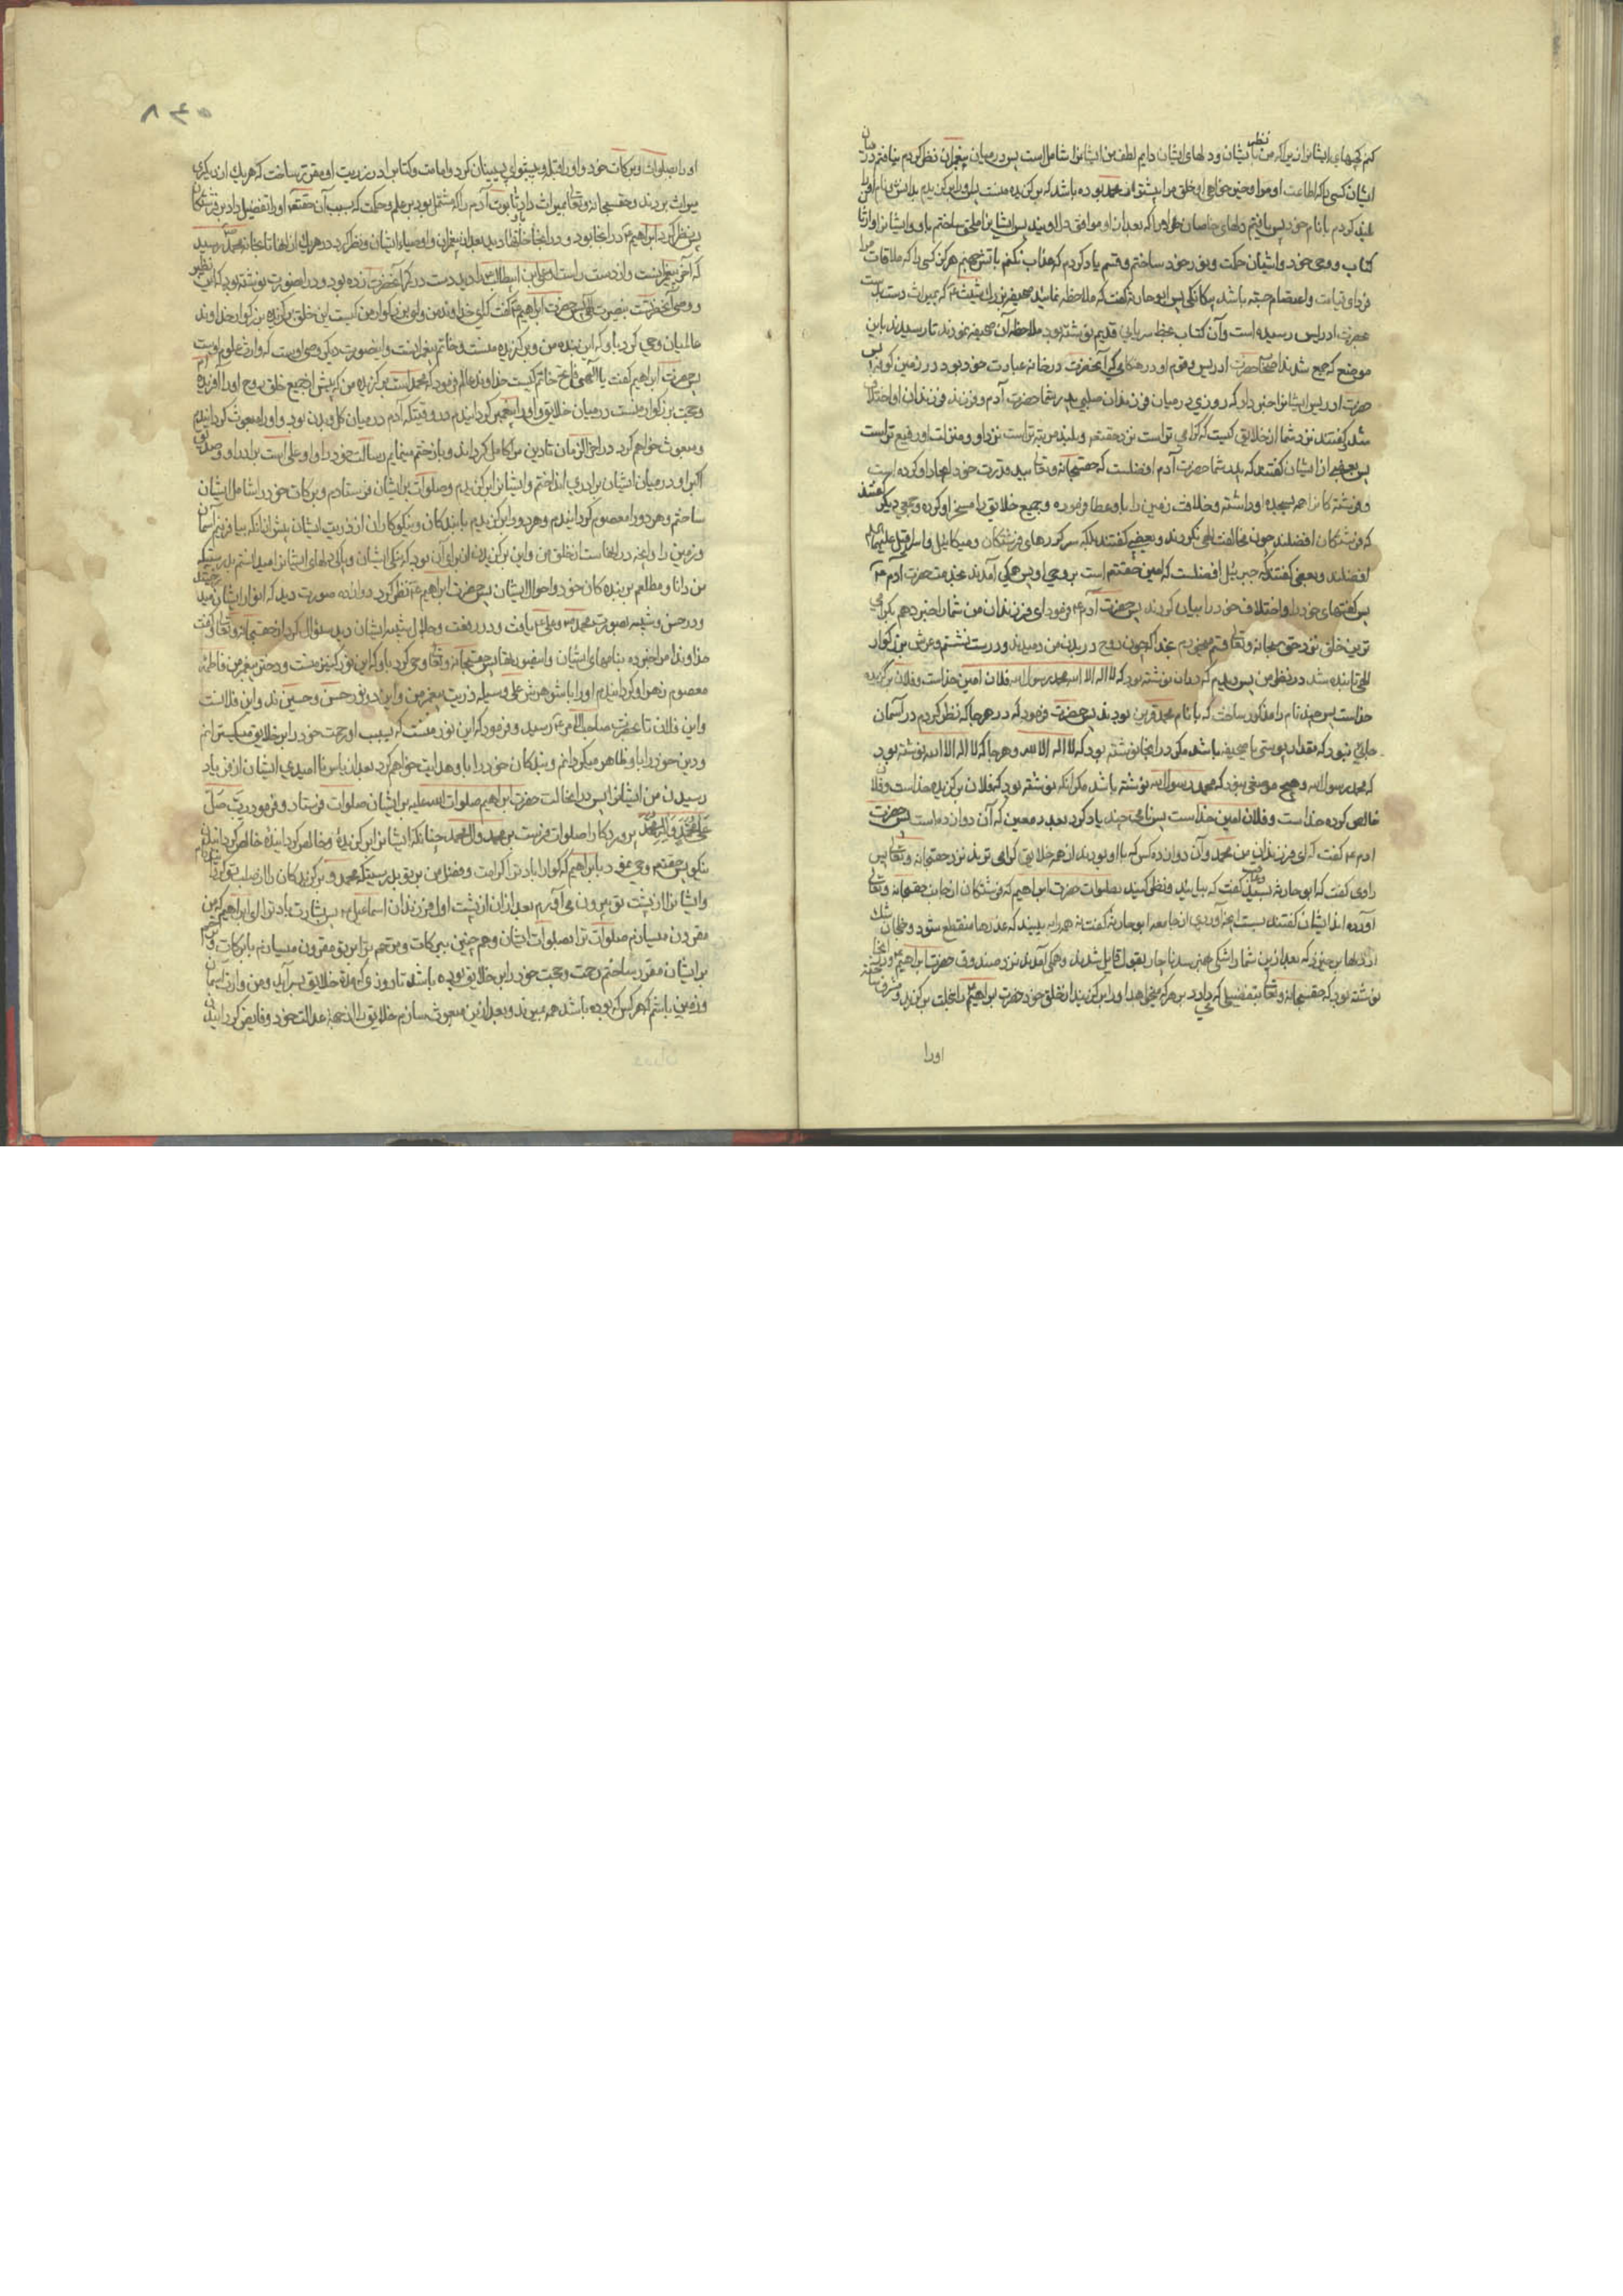 کنم کجهای ایشانرا زیرا که من نظر بایشان و دلهای ایشان دایم لطف من ایشانرا شامل است پس در میان پیغمبران نظر کردم نیافتم در میان
ایشان کسی را که اطاعت او مرا و خیرخواهی او خلق مرا بیشتر از محمد بوده باشد که برگزیده منست پس او را برگزیدم
بلند کردم با نام خود پس یافتم دلهای خاصان خواهرا که بعد از او موافق دل اویند پس ایشانرا ملحق ساختم باو و ایشانرا وارثان
کتاب و وحی خود و اشیان حکمت و نور خود ساختم و قسم یاد کردم که عذاب نکنم باتش جهنم هرگز کسی را که ملاقات مرا
فردای قیامت و اعتصام جسته باشد پس ابو حارثه گفت که ملاحظه نمائید صحیفه بزرك شیث را که بمیراث دست بدست
بحضرت ادریس رسیده است و آن کتاب بخط سریانی قدیم نوشته بود ملاحظه آن صحیفه نمودند تا رسیدند باین
موضع که جمع شدند اصحاب حضرت ادریس و قوم او در هنگامی که آنحضرت در خانه عبادت خود بود در زمین کوفه پس
حضرت ادریس ایشانرا خبر داد که روزی در میان فرزندان صلبی پدر شما حضرت آدم و فرزند فرزندان او اختلاف
شد گفتند نزد شما از خلایق کیست که گرامی تر است نزد حقتعالی و بلند مرتبه تر است نزد او و منزلت او رفیع تر است
پس بعضی از ایشان گفتند که پدر شما حضرت آدم افضلست که حقسبحانه و تعالی بید قدرت خود ایجاد او کرده است
و فرشتگانرا همه بسجده او داشته و خلافت زمین را باو عطا فرموده و جمیع خلایق را مسخر او کرده و جمعی دیگر گفتند
که فرشتگان افضلند چون مخالفت الهی نکردند و بعضی گفتند بلکه سرکرده های فرشتگان و میکائیل و اسرافیل علیهم السلام
افضلند و بعضی گفتند که جبرئیل افضلست که امین حقتعالی است بر وحی او پس همگی آمدند بخدمت حضرت آدم ع
پس گفتهای خود را و اختلاف خود را بیان کردند پس حضرت آدم ع فرمود ای فرزندان من شما را خبر دهم بگرامی
ترین خلق نزد حق سبحانه و تعالی قسم میخورم بخدا که چون روح در بدن من دمیدند و درست نشستم و عرش بزرگوار
الهی تابنده شد در نظر من پس دیدم که در آن نوشته بود که لا اله الا الله محمد رسول الله فلان امین خداست و فلان برگزیده
خداست پس چند نام را مذکور ساخت که با نام محمد قرین بودند پس حضرت فرمود که در هر جا که نظر کردم در آسمان
جایی نبود که بقدر پوستی یا صحیفه باشد مگر در آنجا نوشته بود که لا اله الا الله و هر جا که لا اله الا الله نوشته بود
که محمد رسول الله و هیچ موضعی نبود که محمد رسول الله نوشته باشد مگر آنکه نوشته بود که فلان برگزیده خداست و فلان
خالص کرده خداست و فلان امین خداست پس نامی چند یاد کرد بعدد معین که آن دوازده است پس حضرت
آدم ع گفت که ای فرزندان من محمد و آن دوازده کس که با او بودند از همه خلایق گرامی ترند نزد حقسبحانه و تعالی پس
راوی گفت که ابو حارثه بسید و عاقب گفت که بیایید و نظر کنید بصلوات حضرت ابراهیم که فرشتگان از جانب حقسبحانه و تعالی
آورده اند ایشان گفتند بس است آنچه آوردی از جامعه ابو حارثه گفت نه همه را ببینید که عذرها منقطع شود و خلجان شك
از دلها برخیزد که بعد ازین شما را شکی بهم نرسد ناچار بقول او قایل شدند و همگی آمدند نزد صندوق حضرت ابراهیم و در آنجا
نوشته بود که حقسبحانه و تعالی بتفضیلی که دارد بر هر که میخواهد از خلق خود حضرت ابراهیم را بخلت برگزید و مشرف ساخت
اورا
۵۶۸
او را بصلوات و برکات خود و او را قبله و پیشوای پسینیان کرد و امامت و کتابرا در ذریت او مقرر ساخت که هر یك از دیگری
میراث بردند و حقسبحانه و تعالی بمیراث داد باو تابوت آدم را که مشتمل بود بر علم و حکمت که بسبب آن حقتعالی او را تفضیل داد بر فرشتگان
پس نظر کرد ابراهیم ع در آنجا بود و در آنجا خانها دید بعدد پیغمبران و اوصیاء ایشان و نظر کرد در هر یك از آنها تا بخانه محمد ص رسید
که آخر پیغمبرانست و از دست راست او علی بن ابیطالب را دید دست در کمر آنحضرت زده بود و در آنصورت نوشته بود که این نظیر
و وصی آنحضرتست بنصرت الهی پس حضرت ابراهیم ع گفت که ای خداوند من و ای بزرگوار من کیست این خلق برگزیده بزرگوار خداوند
عالمیان وحی کرد باو که این بنده من و برگزیده منست و خاتم پیغمبرانست و این صورت دیگر وصی اوست که وارث علوم اوست
پس حضرت ابراهیم گفت یا الهی فاتح خاتم کیست خداوند عالم فرمود که محمد است برگزیده من که پیش از جمیع خلق روح او را آفریده ام
و حجت بزرگوار منست در میان خلایق و او را پیغمبر گردانیدم در وقتیکه آدم در میان گل و بدن بود و او را مبعوث گردانیدم
و مبعوث خواهم کرد در آخر الزمان تا دین مرا کامل گرداند و باو ختم مینمایم رسالت خود را و او علی است برادر او و صدیق
اکبر او در میان ایشان برادری انداختم و ایشانرا برگزیدم و صلوات بر ایشان فرستادم و برکات خود را شامل ایشان
ساختم و هر دو را معصوم گردانیدم و هر دو را برگزیدم با بندگان و نیکوکاران از ذریت ایشان پیش از آنکه بیافرینم آسمان
و زمین را و آنچه در آنجاست از خلق من و این برگزیدن از برای آن بود که نیکی ایشان و پاکی دلهای ایشانرا میدانستم بدرستیکه
من دانا و مطلعم بر بنده گان خود و احوال ایشان پس حضرت ابراهیم ع نظر کرد دوازده صورت دید که انوار ایشان میدرخشید
و در حسن و شبیه بصورت محمد ص و علی ع یافت و در رفعت و جلال شبیه ایشان دید سئوال کرد از حقسبحانه و تعالی و گفت
خداوندا مرا خبر ده بنامهای ایشان پس حقسبحانه و تعالی وحی کرد باو که این نور کنیز منست و دختر پیغمبر من فاطمه
معصوم زهرا و گردانیدم او را با شوهرش علی وسیله ذریت پیغمبر من و این دو نور حسن و حسین اند و این فلانست
و این فلان تا بحضرت صاحب الامر ع رسید و فرمود که این نور منست که بسبب او رحمت خود را بر خلایق میگسترانم
و دین خود را باو ظاهر میگردانم و بندگان خود را باو هدایت خواهم کرد بعد از یأس و ناامیدی ایشان از فریاد
رسیدن من ایشانرا پس در آنحالت حضرت ابراهیم صلوات الله علیه بر ایشان صلوات فرستاد و فرمود رب صل
علی محمد و آل محمد پروردگارا صلوات فرست بر محمد و آل محمد چنانکه ایشانرا برگزیدۀ و خالص گردانیدۀ خالص گردانیدن
نیکو پس حقتعالی وحی نمود بابراهیم که گوارا باد ترا کرامت و فضل من بر تو بدرستیکه محمد و برگزیدگان را از صلب تو گردانیدم
و ایشانرا از پشت تو بیرون می آورم بعد از آن از پشت اول فرزندان اسماعیل پس بشارت باد ترا ای ابراهیم که من
مقرون میسازم صلوات ترا بصلوات ایشان و هم چنین برکات و ترحم ترا بر تو مقرون میسازم با برکات و ترحم
بر ایشان مقرر ساختم رحمت و حجت خود را بر خلایق بوده باشد تا روزی که مدت خلایق بسر آید و من وارث آسمان
و زمین باشم که هر کس که بوده باشد همه بمیرند و بعد ازین مبعوث سازم خلایق را از جهة عدالت خود و فایض گردانیدن